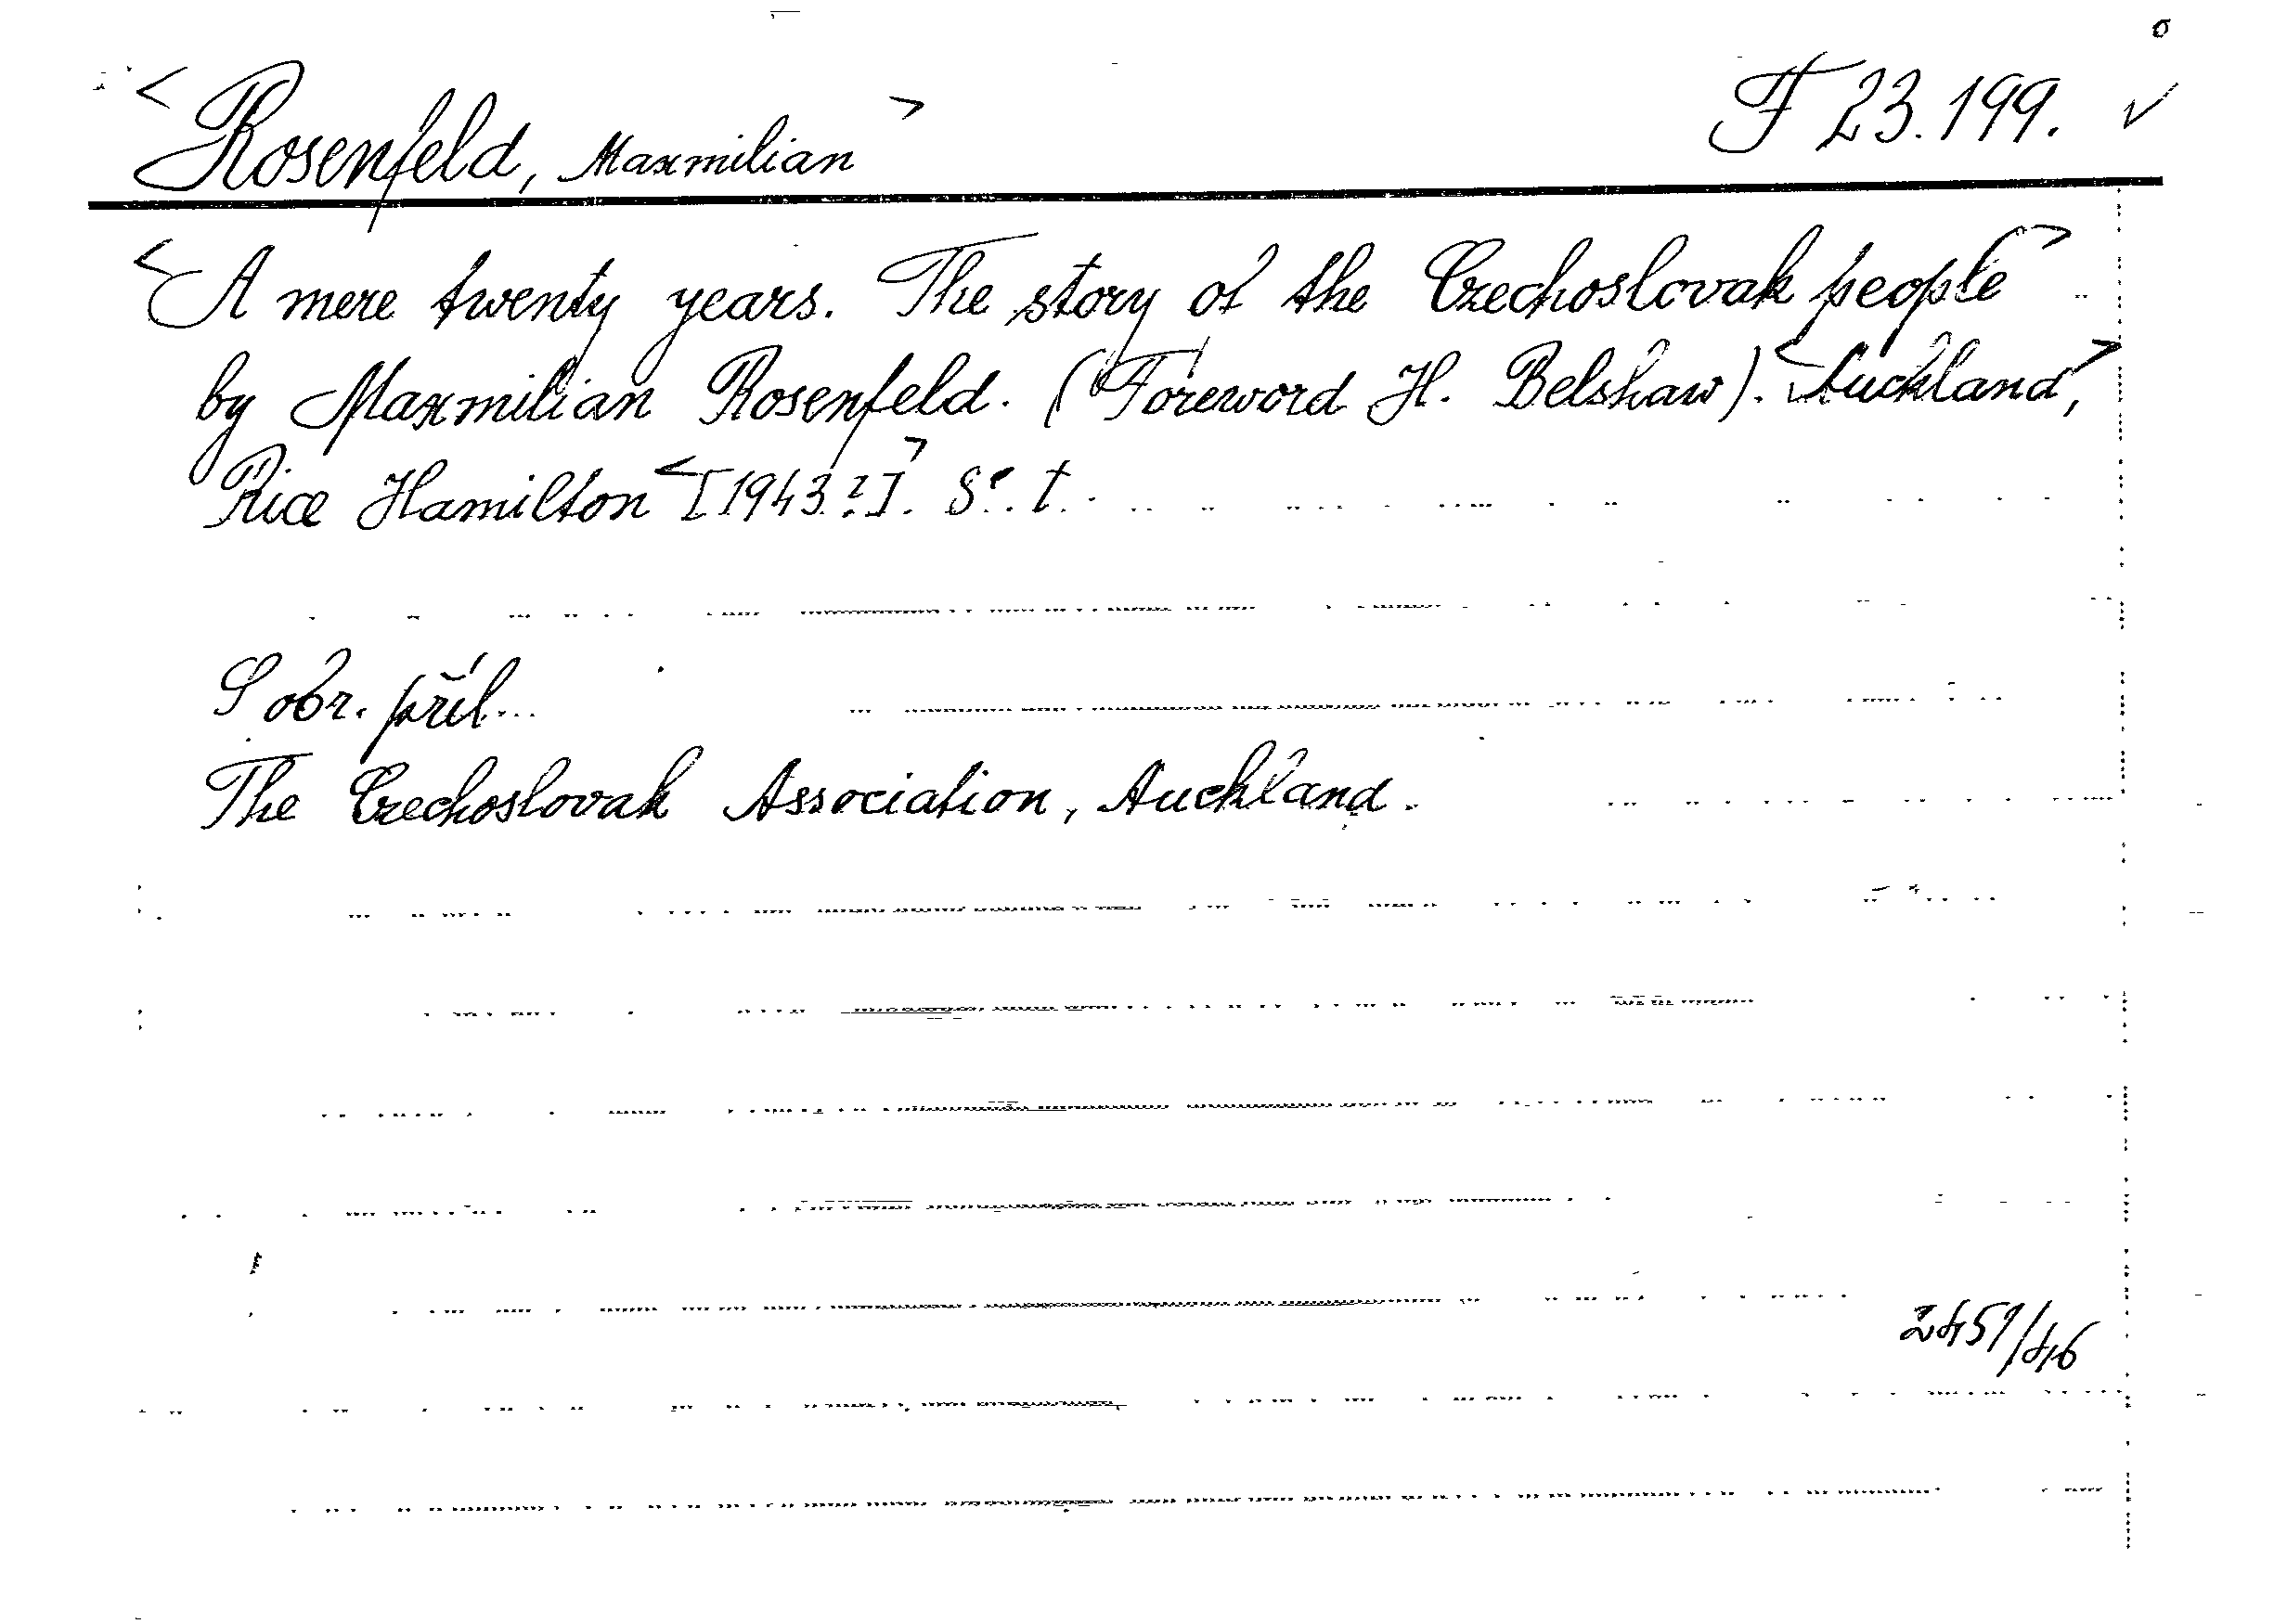 <Rosenfeld, Maxmilian> F 23.199. ✓
<A mere twenty years. The story of the Czechoslovak people>
by Maxmilian Rosenfeld. (Foreword H. Belshaw). <Auckland,>
Rice Hamilton <[1943?]>. 8°. t.
S obr. příl.
The Czechoslovak Association, Auckland.
2451/46